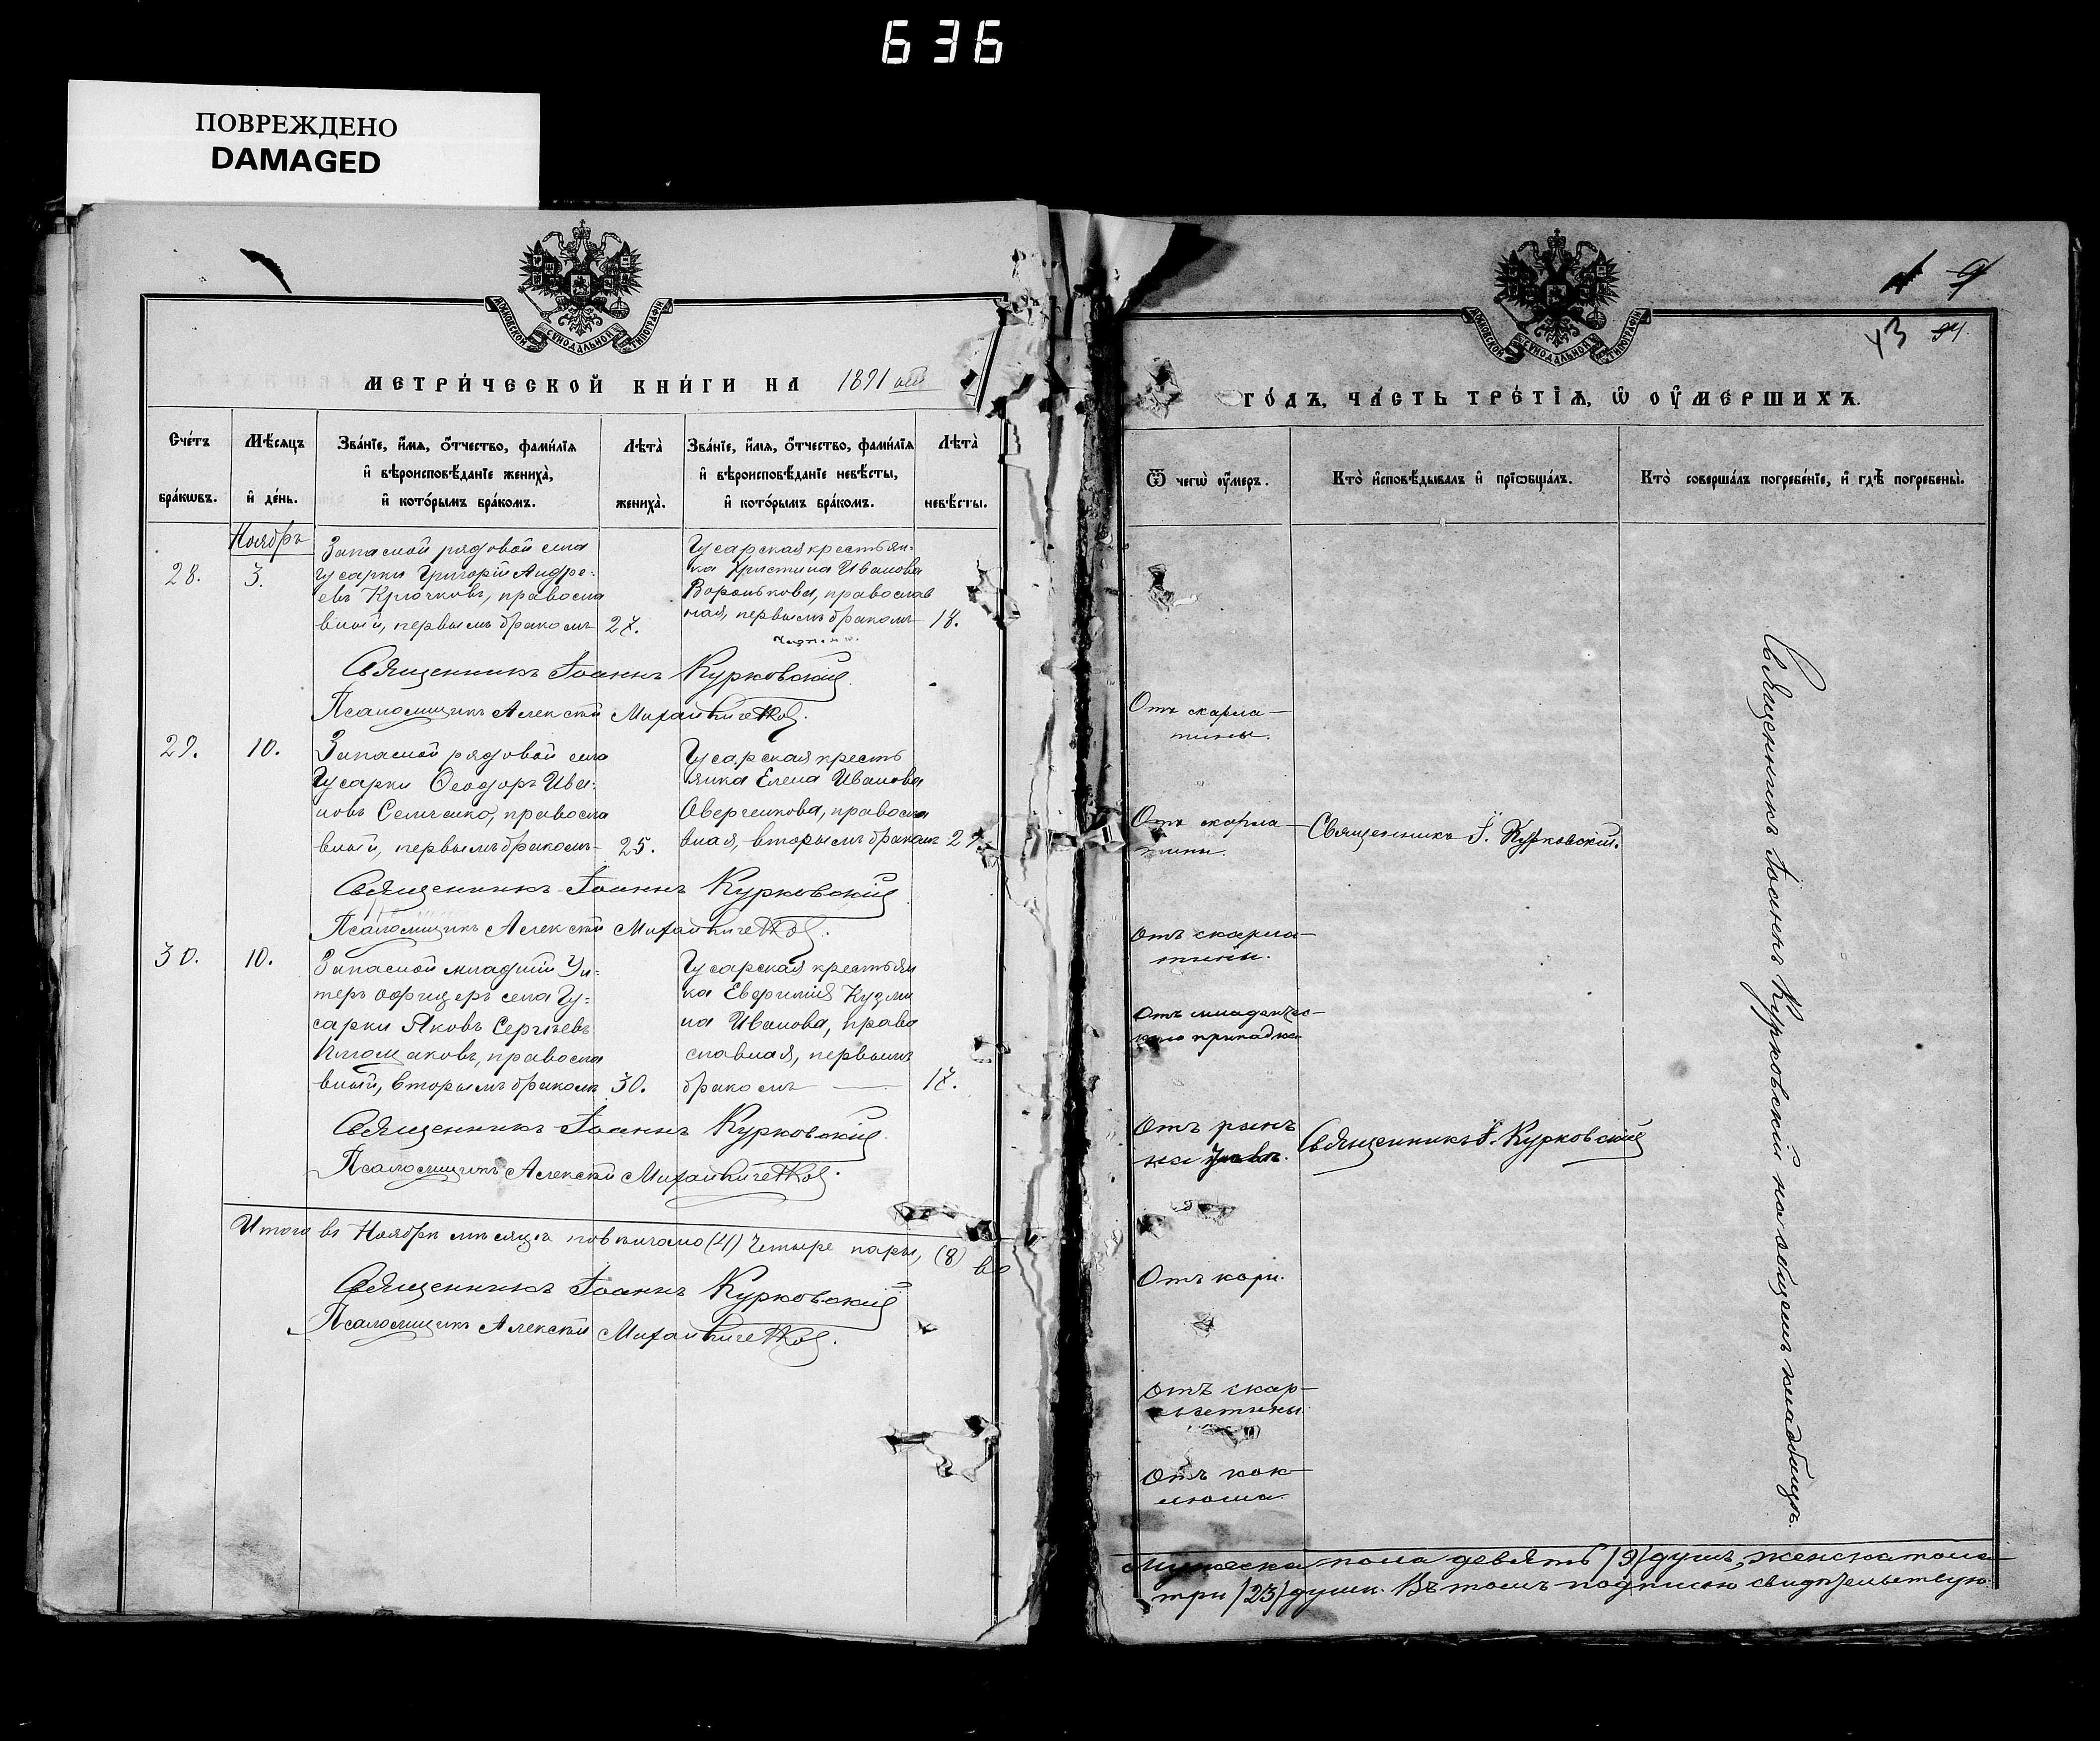 636
ПОВРЕЖДЕНО
DAMAGED
МОСКОВСКОЙ СѴНОДАЛЬНОЙ ТИПОГРАФІИ
МЕТРИ́ЧЕСКОЙ КНИ́ГИ НА 1891 ый
Сче́тъ бра́кѡвъ.
Мѣ́сяцъ и҆ де́нь.
Зва́нїе, и҆́мѧ, ѻ҆́тчество, фами́лїѧ
и҆ вѣроисповѣ́данїе жениха̀,
и҆ кото́рымъ бра́комъ.
Лѣта̀ жениха̀.
Зва́нїе, и҆́мѧ, ѻ҆́тчество, фами́лїѧ
и҆ вѣроисповѣ́данїе невѣ́сты,
и҆ кото́рымъ бра́комъ.
Лѣта̀ невѣ́сты.
Ноябрь
28.
3.
Запасной рядовой села
Гусарки Григорій Андре-
евъ Крючковъ, правосла
вный, первымъ бракомъ
27.
Гусарская крестьян-
ка Христина Иванова
Воронькова, православ
ная, первымъ бракомъ
18.
Священникъ Іоаннъ Курковскій
Псаломщикъ Алексѣй
29.
10.
Запасной рядовой села
Гусарки Ѳеодоръ Ива-
новъ Семченко, правосла
вный, первымъ бракомъ
25.
Гусарская кресть
янка Елена Иванова
Аверченкова, правосла
вная, вторымъ бракомъ
Священникъ Іоаннъ Курковскій
Псаломщикъ Алексѣй
30.
10.
Запасной младшій Ун-
теръ офицеръ села Гу-
сарки Яковъ Сергѣевъ
правосла
вный, вторымъ бракомъ
30.
Гусарская крестьян
ка Евфимія Кузми
на Иванова, право
славная, первымъ
бракомъ
17.
Священникъ Іоаннъ Курковскій
Псаломщикъ Алексѣй
Итого въ Ноябрѣ мѣсяцѣ повѣнчано (4) четыре пары, (8) во
Священникъ Іоаннъ Курковскій
Псаломщикъ Алексѣй
МОСКОВСКОЙ СѴНОДАЛЬНОЙ ТИПОГРАФІИ
43
ГО́ДЪ, ЧА́СТЬ ТРЕ́ТЇѦ, Ѡ҆ ОУ҆МЕРШИХЪ.
Ѿ чегѡ̀ ᲂу҆́меръ.
Кто̀ и҆сповѣ́дывалъ и҆ прїѡбща́лъ.
Кто̀ соверша́лъ погребе́нїе, и҆ гдѣ̀ погребены̀.
Отъ скарла-
тины.
Отъ скарла-
тины.
Священникъ І. Курковскій.
Отъ скарла-
тины.
Отъ младенчес-
каго припадка
Отъ
на
Священникъ І. Курковскій
Отъ кори.
Отъ скар-
латины
Отъ кок-
люша.
Священникъ Іоаннъ Курковскій на общемъ кладбищѣ.
Мужеска пола девять (9) душъ, женска пола
три (23) души. Въ томъ подписью свидѣтельствую.